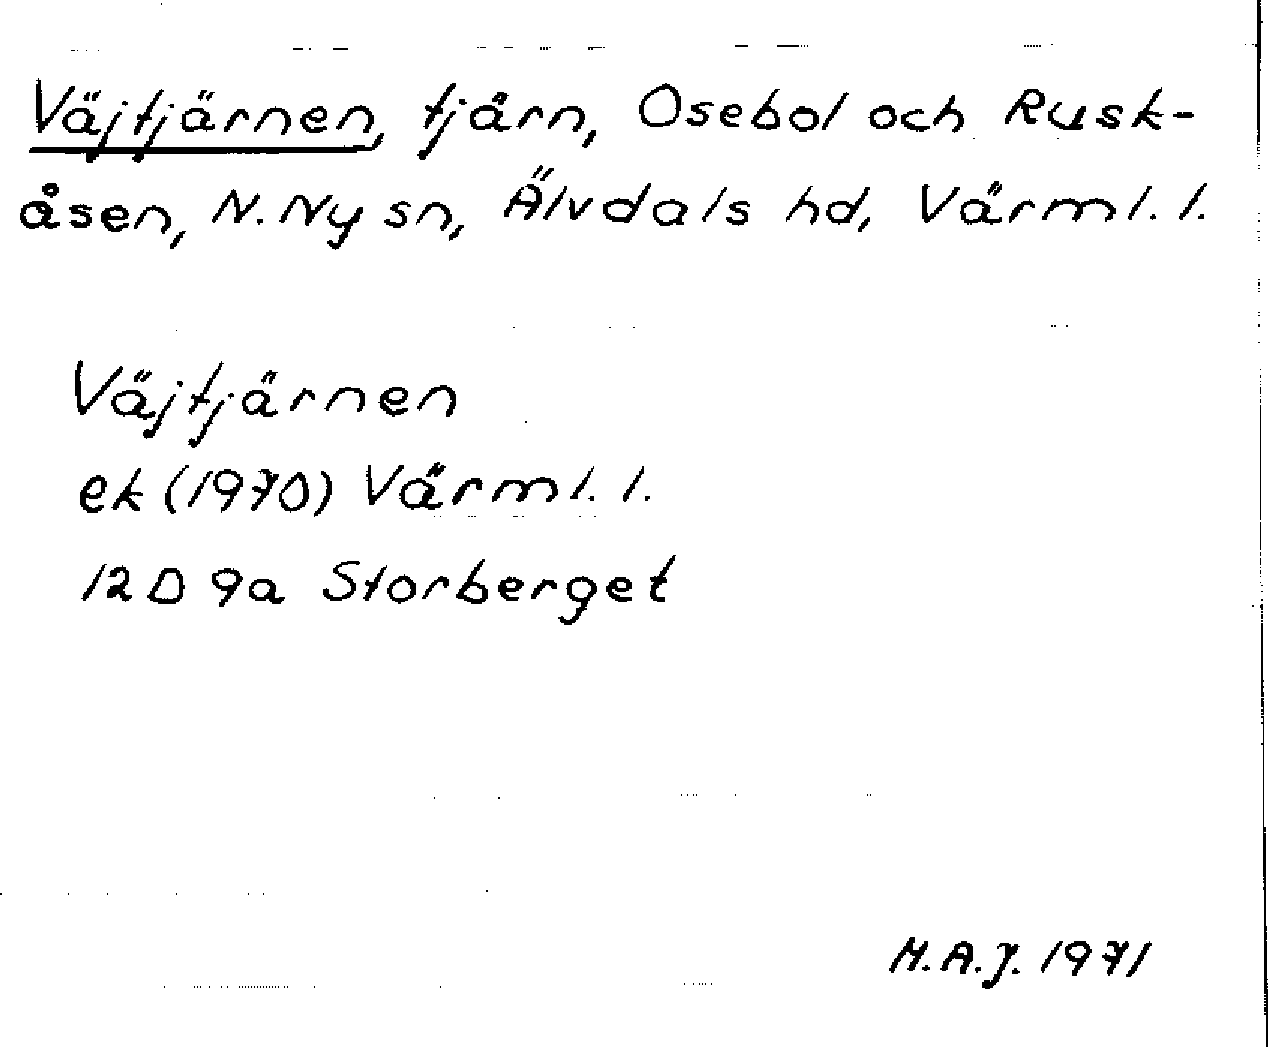 Väjtjärnen, tjärn, Osebol och Rusk-
åsen, N. Ny sn, Älvdals hd, Värml. l.
Väjtjärnen
ek (1970) Värml. l.
12 D 9a Storberget
M.A.J. 1971